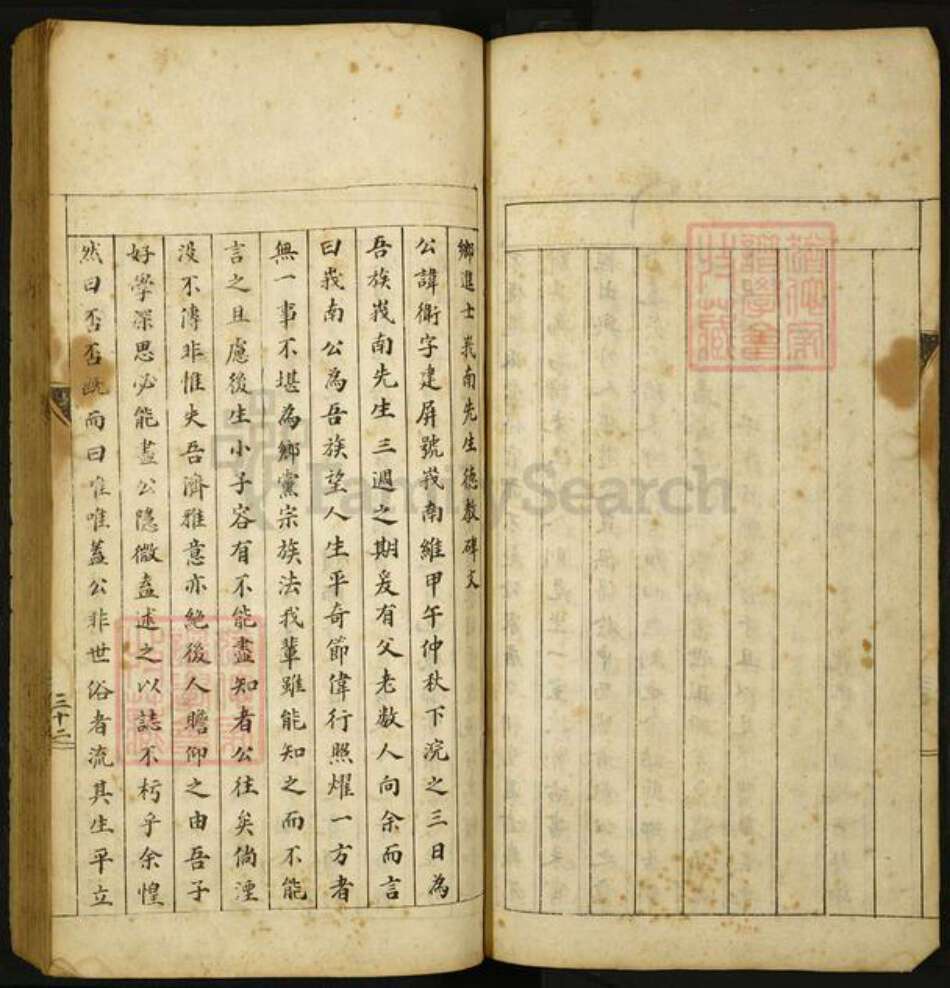 鄉進士峩南先生德教碑文
公諱衛字建屏號峩南維甲午仲秋下浣之三日為
吾族峩南先生三週之期爰有父老数人向余而言
曰峩南公為吾族望人生平奇節偉行照燿一方者
無一事不堪為鄉黨宗族法我輩雖能知之而不能
言之且慮後生小子容有不能盡知者公往矣倘湮
没不傳非惟失吾濟雅意亦絶後人瞻仰之由吾子
好學深思必能盡公隱微盍述之以誌不朽乎余惶
然曰否否既而曰唯唯蓋公非世俗者流其生平立
三十二
FamilySearch